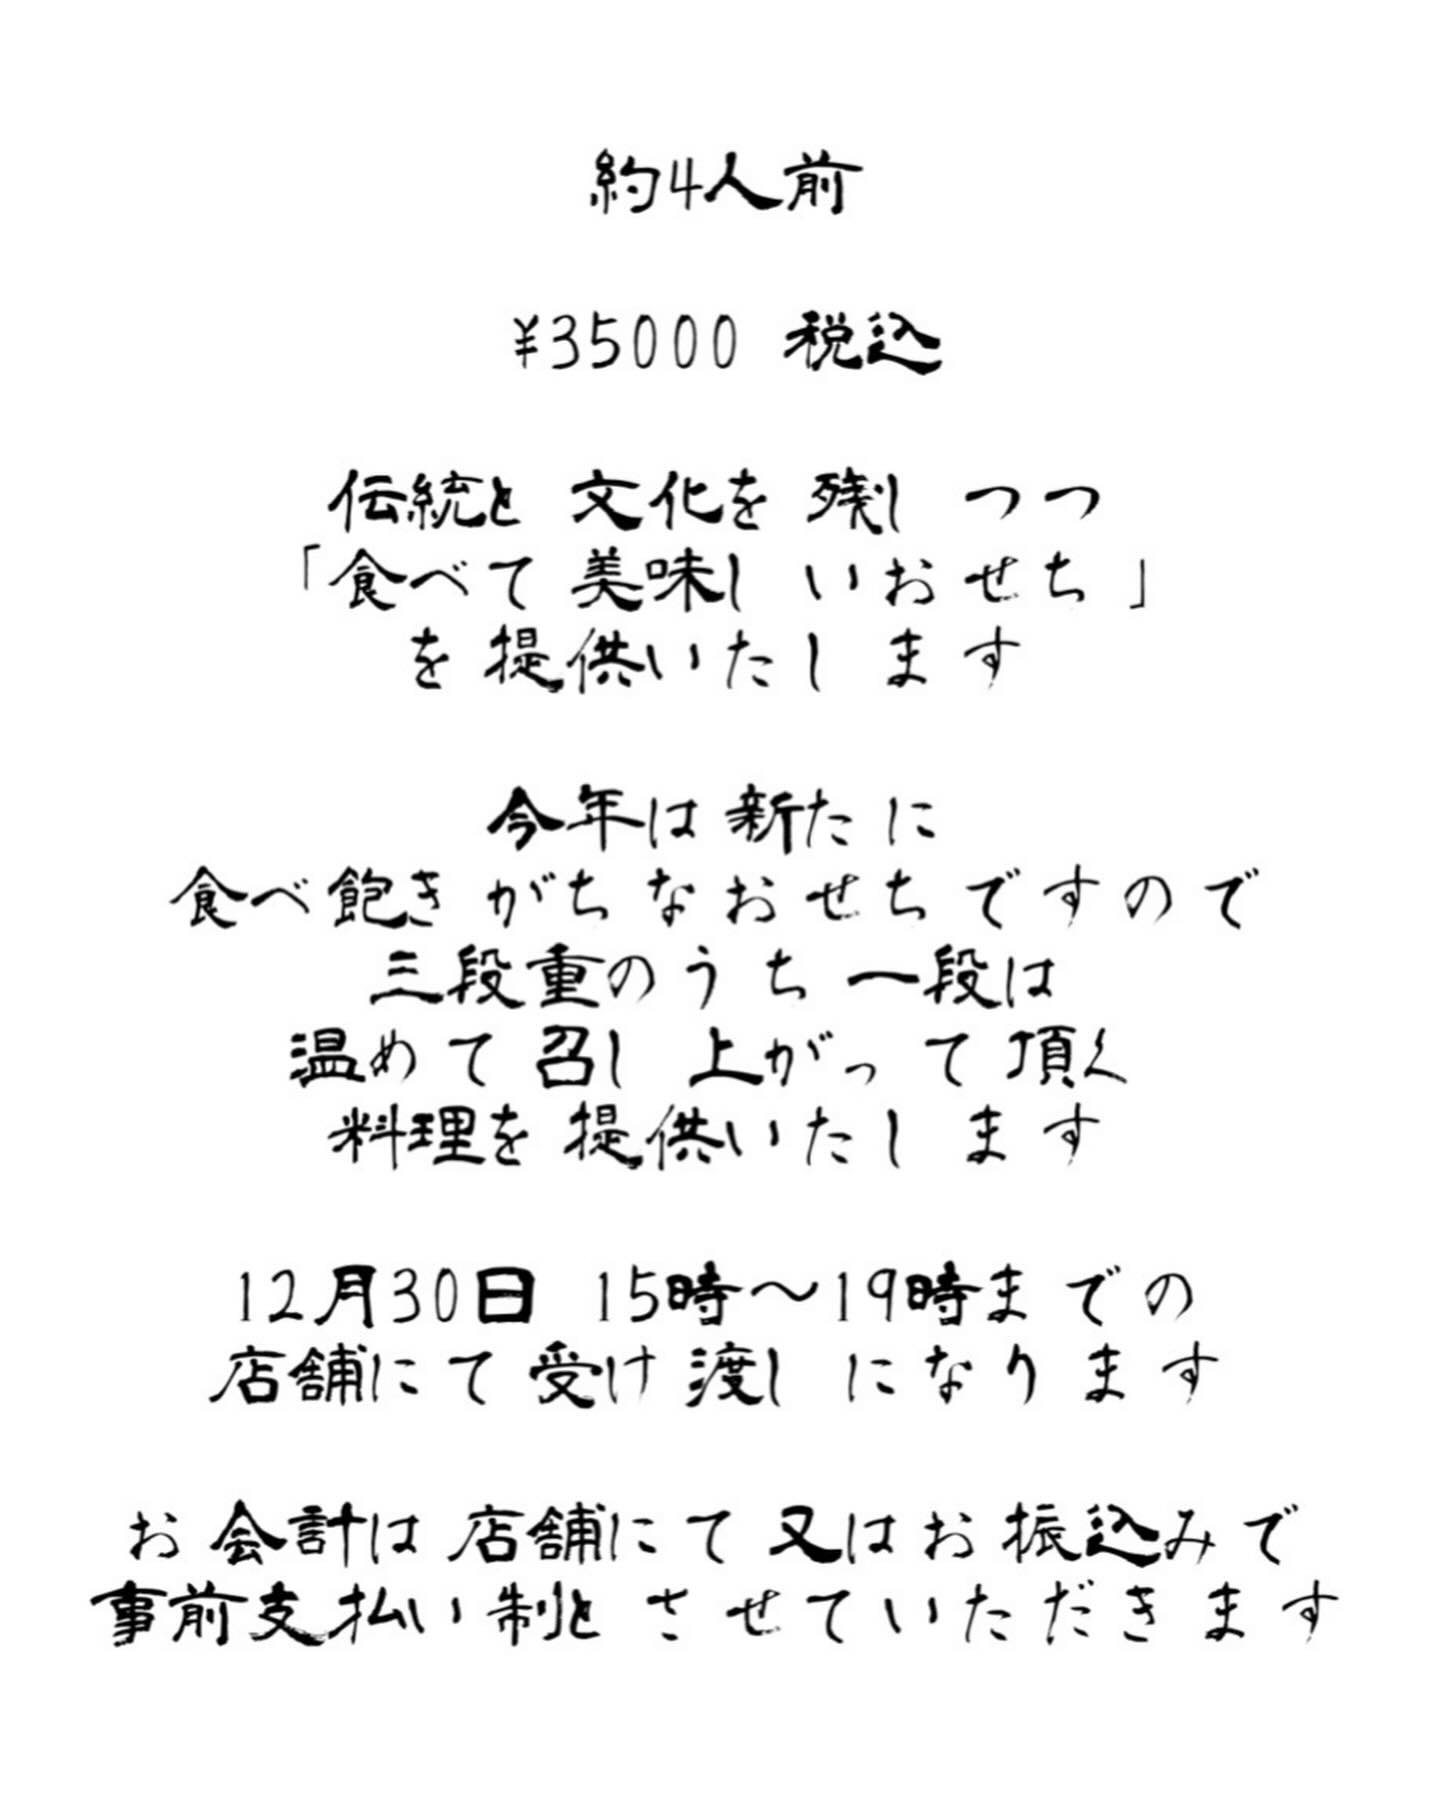 約4人前
¥35000 税込
伝統と文化を残しつつ
「食べて美味しいおせち」
を提供いたします
今年は新たに
食べ飽きがちなおせちですので
三段重のうち一段は
温めて召し上がって頂く
料理を提供いたします
12月30日 15時〜19時までの
店舗にて受け渡しになります
お会計は店舗にて又はお振込みで
事前支払い制とさせていただきます